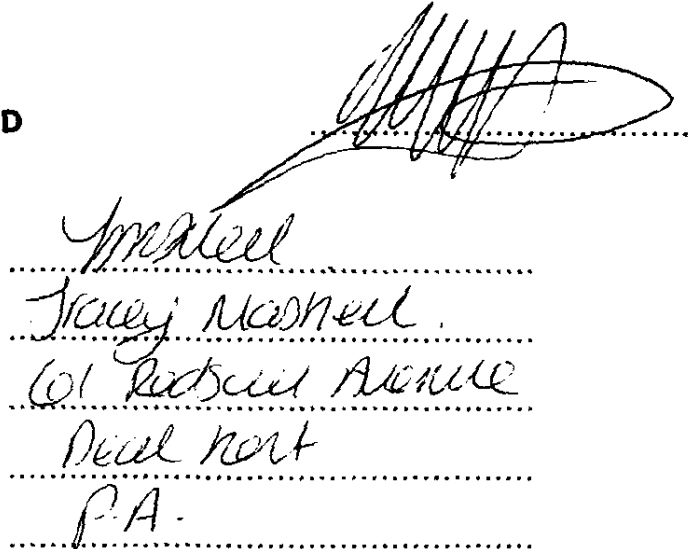 D
Tracey Maskell.
61 Redsull Avenue
Deal Kent
P.A.